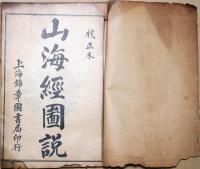 校正本
山海經圖説
上海錦章圖書局印行